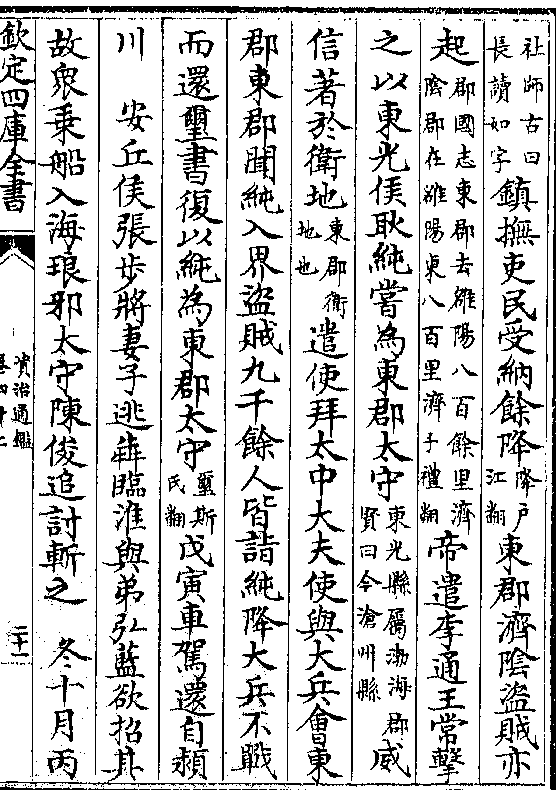 祉師古曰長讀如字鎮撫吏民受納餘降降户江翻東郡濟陰盜賊亦
起郡國志東郡去雒陽八百餘里濟陰郡在雒陽東八百里濟子禮翻帝遣李通王常擊
之以東光侯耿純嘗為東郡太守東光縣屬渤海郡賢曰今滄州縣威
信著於衛地東郡衛地也遣使拜太中大夫使與大兵會東
郡東郡聞純入界盜賊九千餘人皆詣純降大兵不戰
而還璽書復以純為東郡太守璽斯氏翻戊寅車駕還自潁
川　安丘侯張步將妻子逃奔臨淮與弟弘藍欲招其
故衆乗船入海琅邪太守陳俊追討斬之　冬十月丙
欽定四庫全書
資治通鑑
卷四十二
二十一